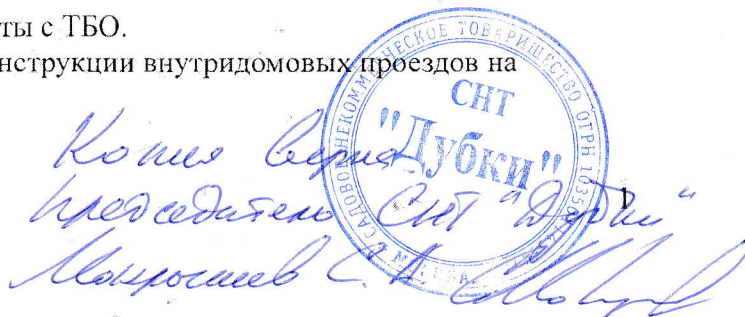 ты с ТБО.
нструкции внутридомовых проездов на
САДОВОЕ НЕКОММЕРЧЕСКОЕ ТОВАРИЩЕСТВО ОГРН
МОСКВА
СНТ
"Дубки"
Копия верна
председатель СНТ "Дубки"
С. А.
1